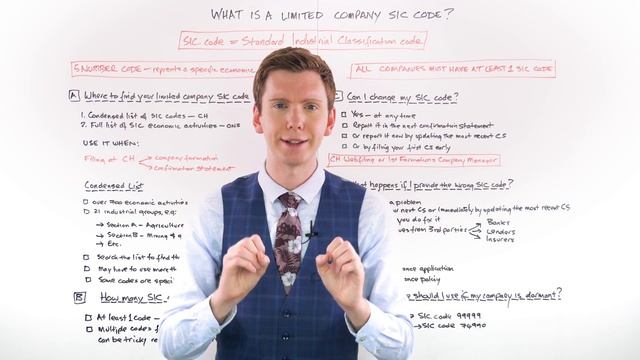 WHAT IS A LIMITED COMPANY SIC CODE?
SIC code = Standard Industrial Classification code
5 NUMBER CODE – represents a specific economic
ALL COMPANIES MUST HAVE AT LEAST 1 SIC CODE
A Where to find your limited company SIC code
1. Condensed list of SIC codes – CH
2. Full list of SIC economic activities – ONS
USE IT WHEN:
Filing at CH
company formation
confirmation statement
Condensed List
over 700 economic activities
21 industrial groups, e.g:
Section A – Agriculture
Section B – Mining &
Etc.
Search the list to find th
May have to use more th
Some codes are speci
B How many SIC
At least 1 code –
Multiple codes f
can be tricky re
Can I change my SIC code?
Yes – at any time
Report it in the next confirmation statement
Or report it now by updating the most recent CS
Or by filing your first CS early
CH WebFiling or 1st Formations Company Manager
happens if I provide the wrong SIC code?
a problem
or next CS or immediately by updating the most recent CS
you do fix it
ues from 3rd parties
Banks
Lenders
Insurers
ance application
ance policy
should I use if my company is dormant?
SIC code 99999
SIC code 74990